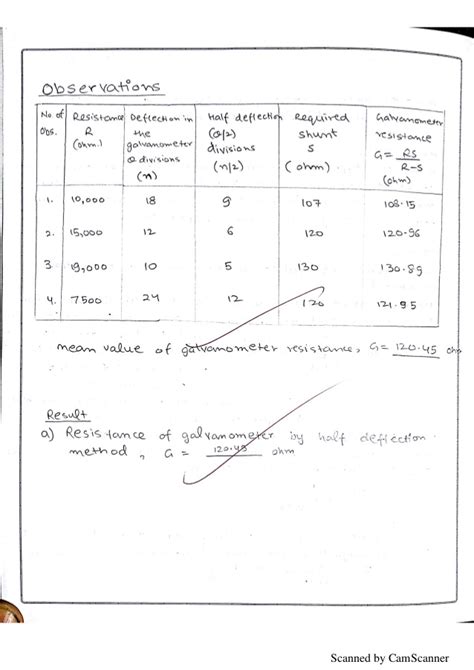 Observations
No. of Obs. Resistance R (ohm.) Deflection in the galvanometer θ divisions (n) Half deflection (θ/2) divisions (n/2) Required shunt S (ohm) Galvanometer resistance G = RS/R-S (ohm)
1. 10,000 18 9 107 108.15
2. 15,000 12 6 120 120.96
3 19,000 10 5 130 130.89
4. 7500 24 12 120 121.95
mean value of galvanometer resistance, G = 120.45 ohm
Result
a) Resistance of galvanometer by half deflection
method, G = 120.45 ohm
Scanned by CamScanner